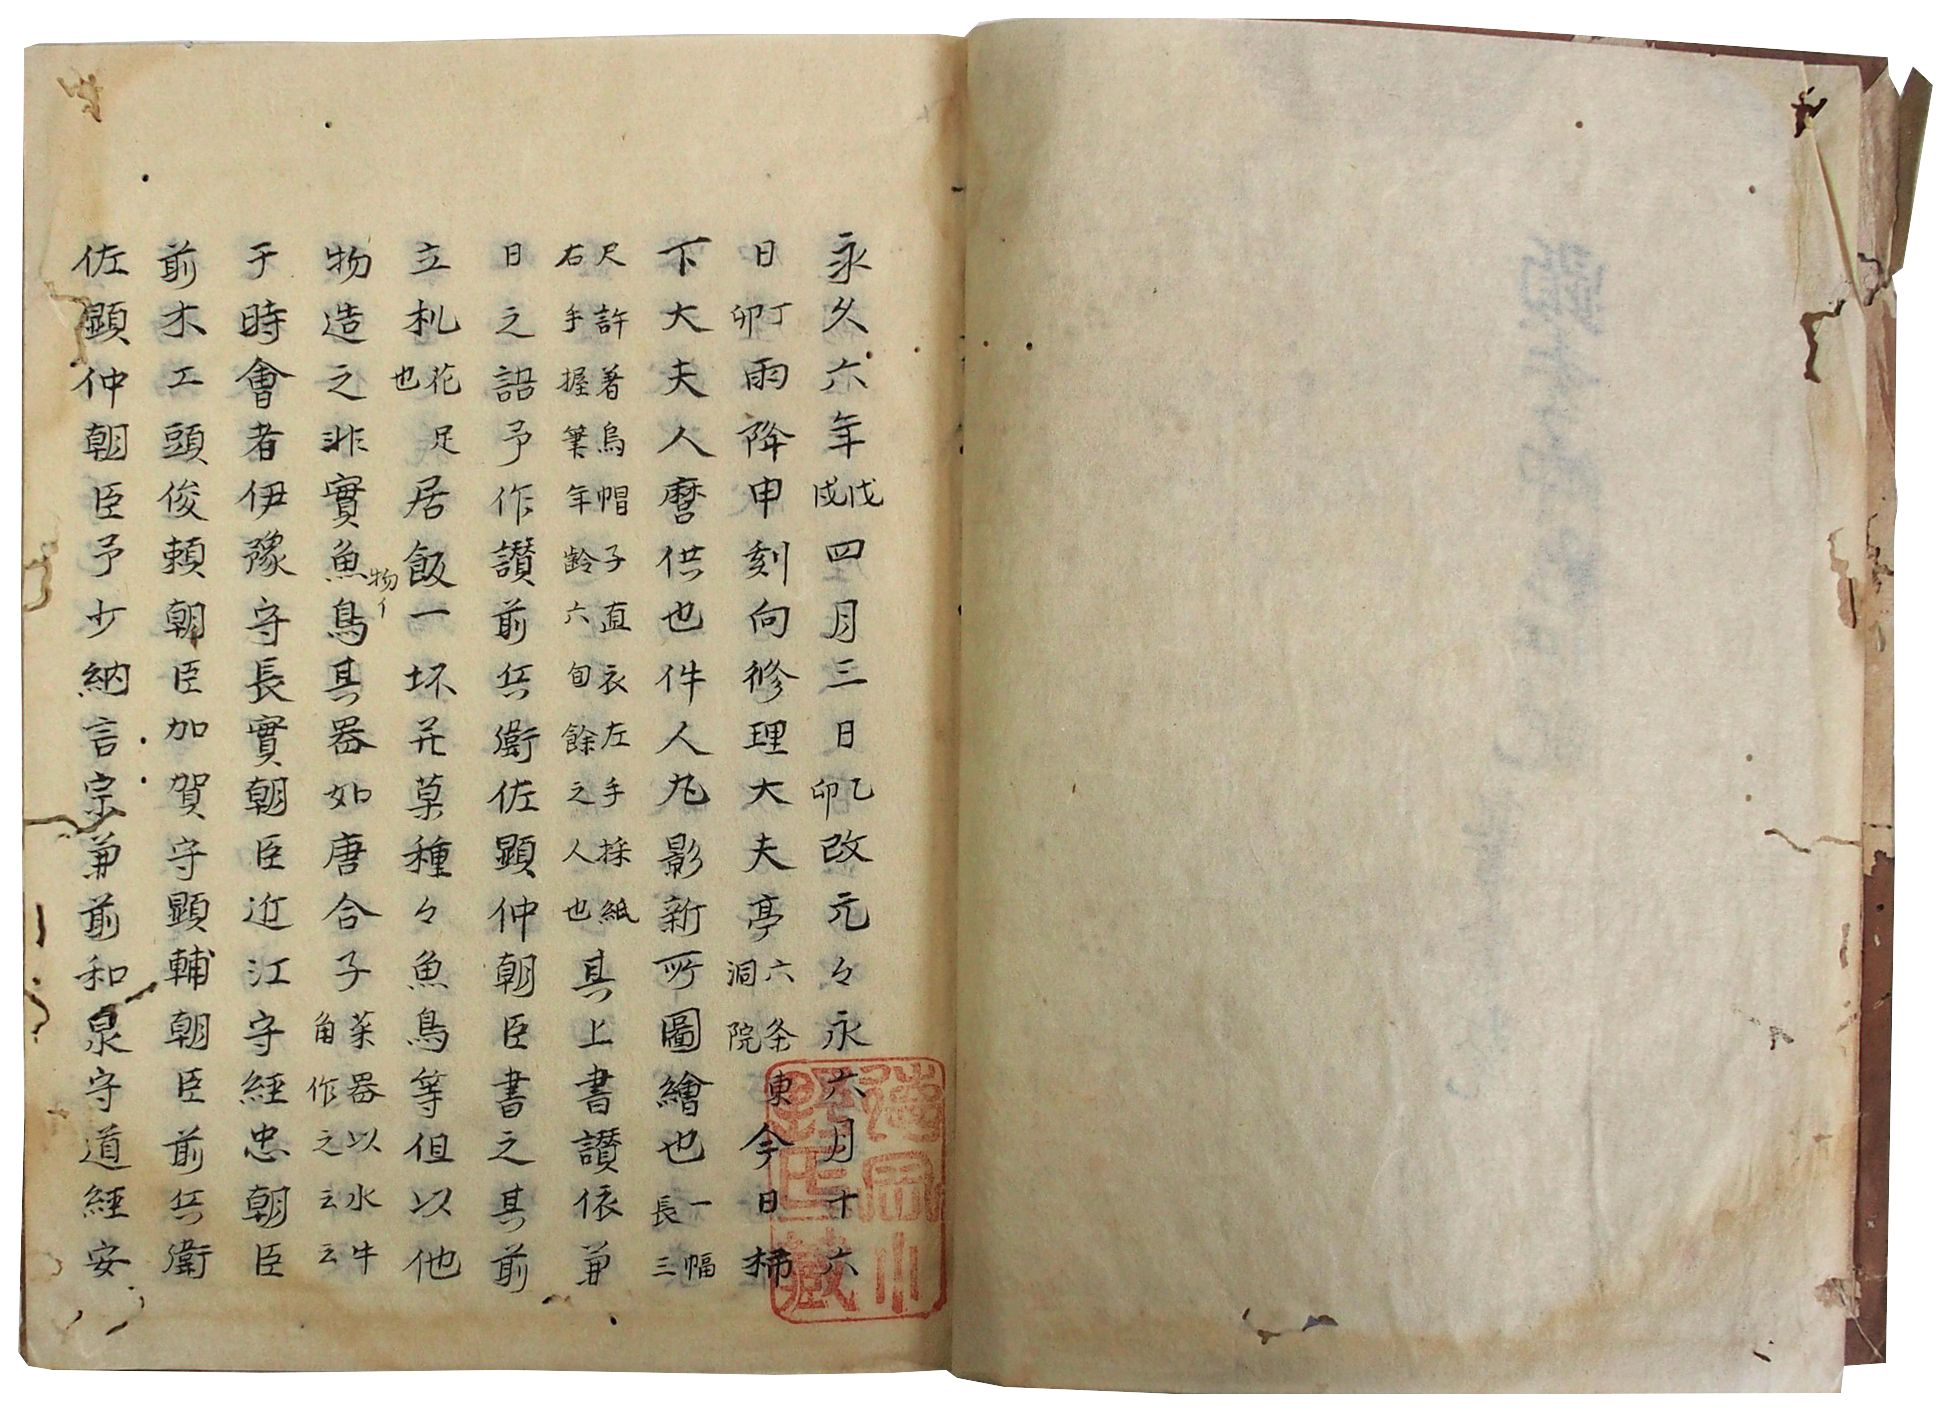 永久六年戊戌四月三日乙卯改元々永六月十六
日丁卯雨降申刻向修理大夫亭六条東洞院今日柿
下大夫人麿供也件人丸影新所圖繪也一幅長三
尺許著烏帽子直衣左手採紙右手握筆年齢六旬餘之人也其上書讃依兼
日之語予作讃前兵衛佐顕仲朝臣書之其前
立札花足也居飯一坏并菓種々魚鳥等但以他
物造之非實魚鳥其器如唐合子菜器以水牛角作之云云
物イ
于時會者伊豫守長實朝臣近江守経忠朝臣
前木工頭俊頼朝臣加賀守顕輔朝臣前兵衛
佐顕仲朝臣予少納言宗兼前和泉守道経安